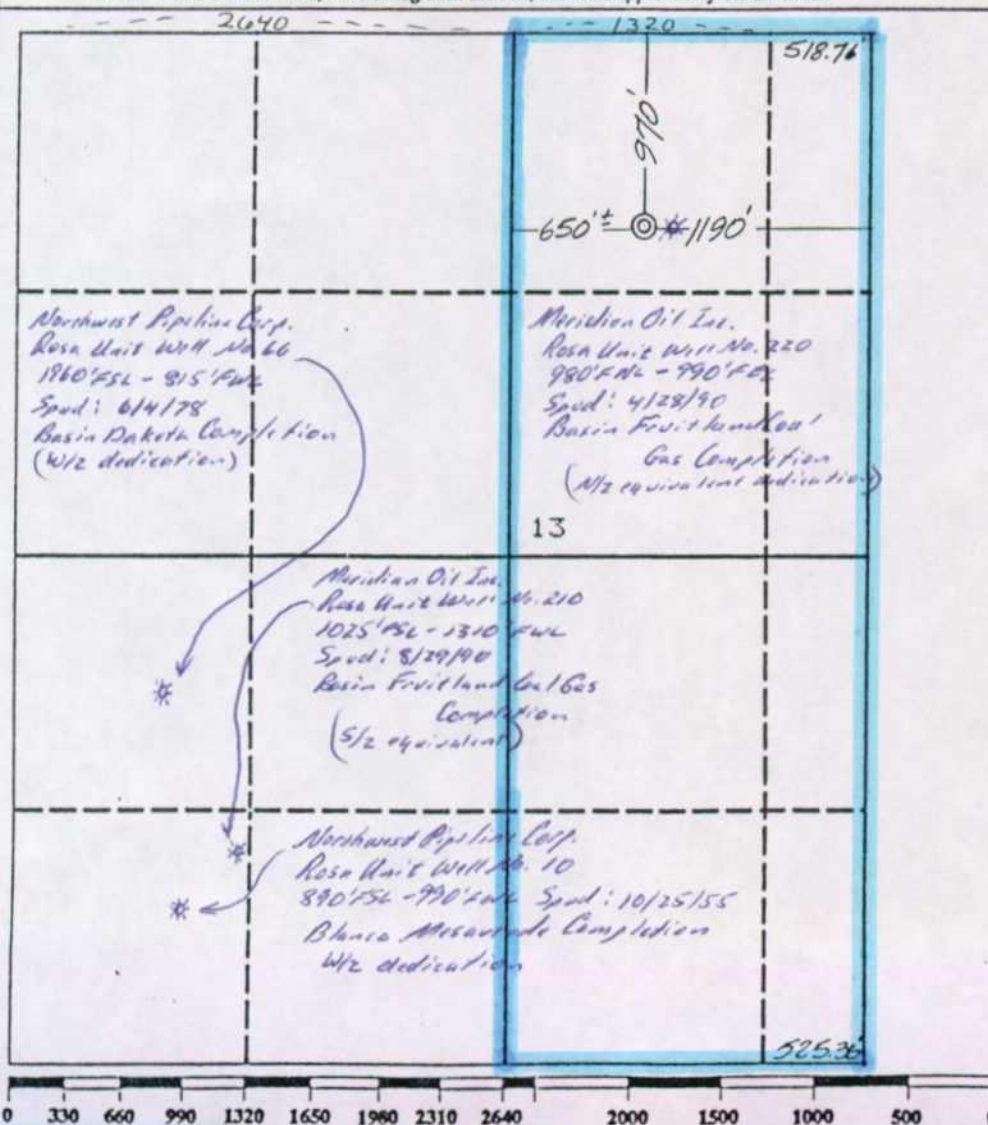 2640
1320
518.76
970'
650'± 1190'
Northwest Pipeline Corp.
Rosa Unit Well No. 66
1960'FSL - 815'FWL
Spud: 6/4/78
Basin Dakota Completion
(W/2 dedication)
Meridian Oil Inc.
Rosa Unit Well No. 220
980'FNL - 990'FEL
Spud: 4/28/90
Basin Fruitland Coal
Gas Completion
(N/2 equivalent dedication)
13
Meridian Oil Inc.
Rosa Unit Well No. 210
1025'FSL - 1310'FWL
Spud: 8/29/90
Basin Fruitland Coal Gas
Completion
(S/2 equivalent)
Northwest Pipeline Corp.
Rosa Unit Well No. 10
890'FSL - 990'FWL Spud: 10/25/55
Blanco Mesaverde Completion
W/2 dedication
525.36
0 330 660 990 1320 1650 1980 2310 2640 2000 1500 1000 500